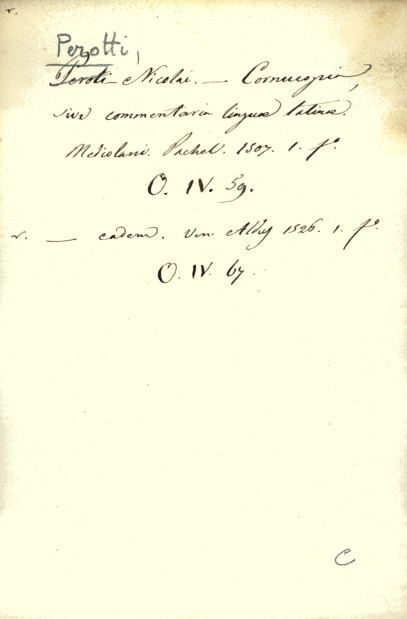 r.
Perotti,
Peroti Nicolai. — Cornucopia,
sive commentaria linguæ latinæ.
Mediolani. Pachel. 1507. 1. fº.
O. IV. 59.
r. — eadem. Ven. Aldus 1526. 1. fº.
O. IV. 67.
C